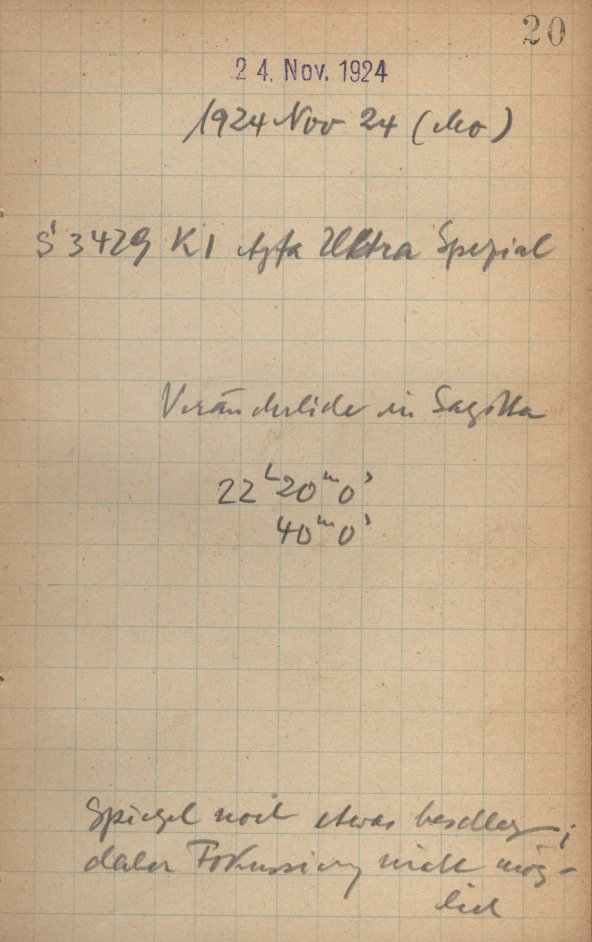 20
24. Nov. 1924
1924 Nov 24 (Mo)
S 3429 K1 Agfa Ultra Spezial
Veränderliche in Sagitta
22ʰ20ᵐ0ˢ
40ᵐ0ˢ
Spiegel noch etwas beschlag;
daher Fokussierung nicht mög-
lich